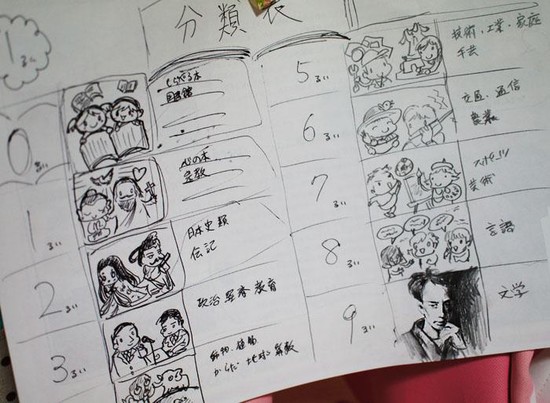 1るい
分類表
0るい
しらべる本
図書館
1るい
心の本
宗教
2るい
日本史類
伝記
3るい
政治 軍事 教育
動物、植物
からだ 地球 算数
5
るい
技術・工業・家庭
手芸
6
るい
交通・通信
農業
7
るい
スポーツ
芸術
8
るい
言語
9
るい
文学